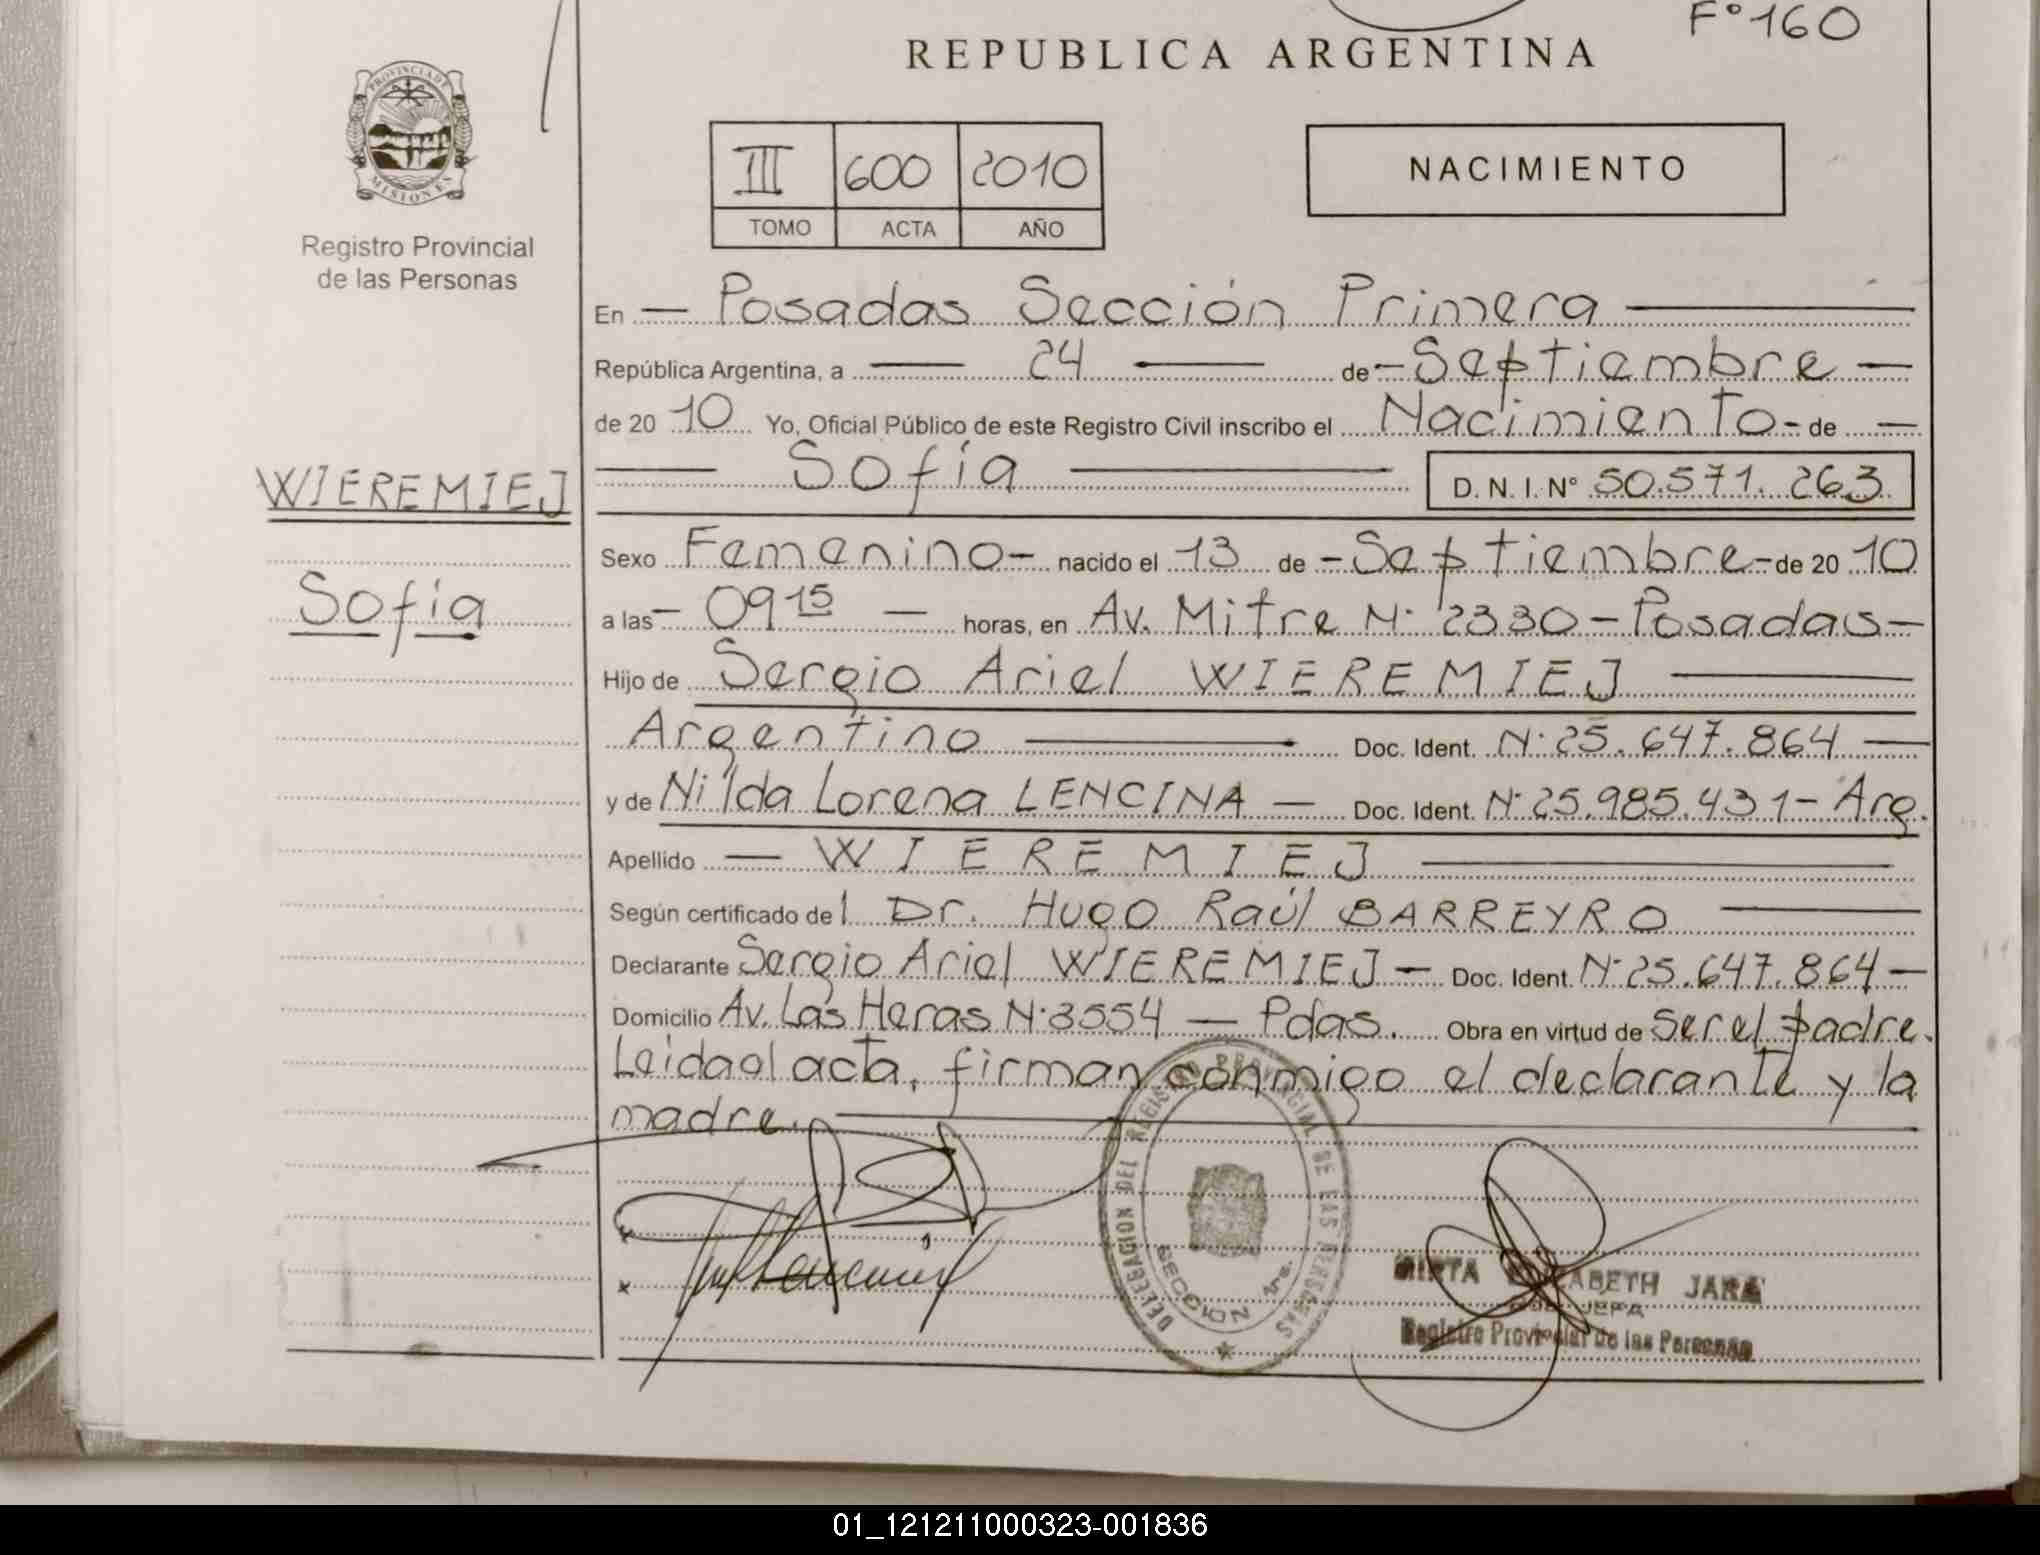 F° 160
REPUBLICA ARGENTINA
PROVINCIA DE
MISIONES
Registro Provincial
de las Personas
III 600 2010
TOMO ACTA AÑO
NACIMIENTO
En — Posadas Sección Primera —
República Argentina, a — 24 — de — Septiembre —
de 20 10 Yo, Oficial Público de este Registro Civil inscribo el Nacimiento - de —
WIEREMIEJ
Sofía
— Sofía — D. N. I. N° 50.571.263
Sexo Femenino — nacido el 13 de — Septiembre — de 20 10
a las — 09 15 — horas, en Av. Mitre N° 2330 — Posadas —
Hijo de Sergio Ariel WIEREMIEJ —
Argentino — Doc. Ident. N° 25.647.864 —
y de Nilda Lorena LENCINA — Doc. Ident. N° 25.985.431 — Arg.
Apellido — WIEREMIEJ —
Según certificado del Dr. Hugo Raúl BARREYRO —
Declarante Sergio Ariel WIEREMIEJ — Doc. Ident. N° 25.647.864 —
Domicilio Av. Las Heras N° 3554 — Pdas. Obra en virtud de ser el padre.
Leida el acta, firman conmigo el declarante y la
madre.
DELEGACION DEL REGISTRO PROVINCIAL DE LAS PERSONAS
SECCION 1ra.
MIRTA ELIZABETH JARA
JEFA
Registro Provincial de las Personas
01_121211000323-001836